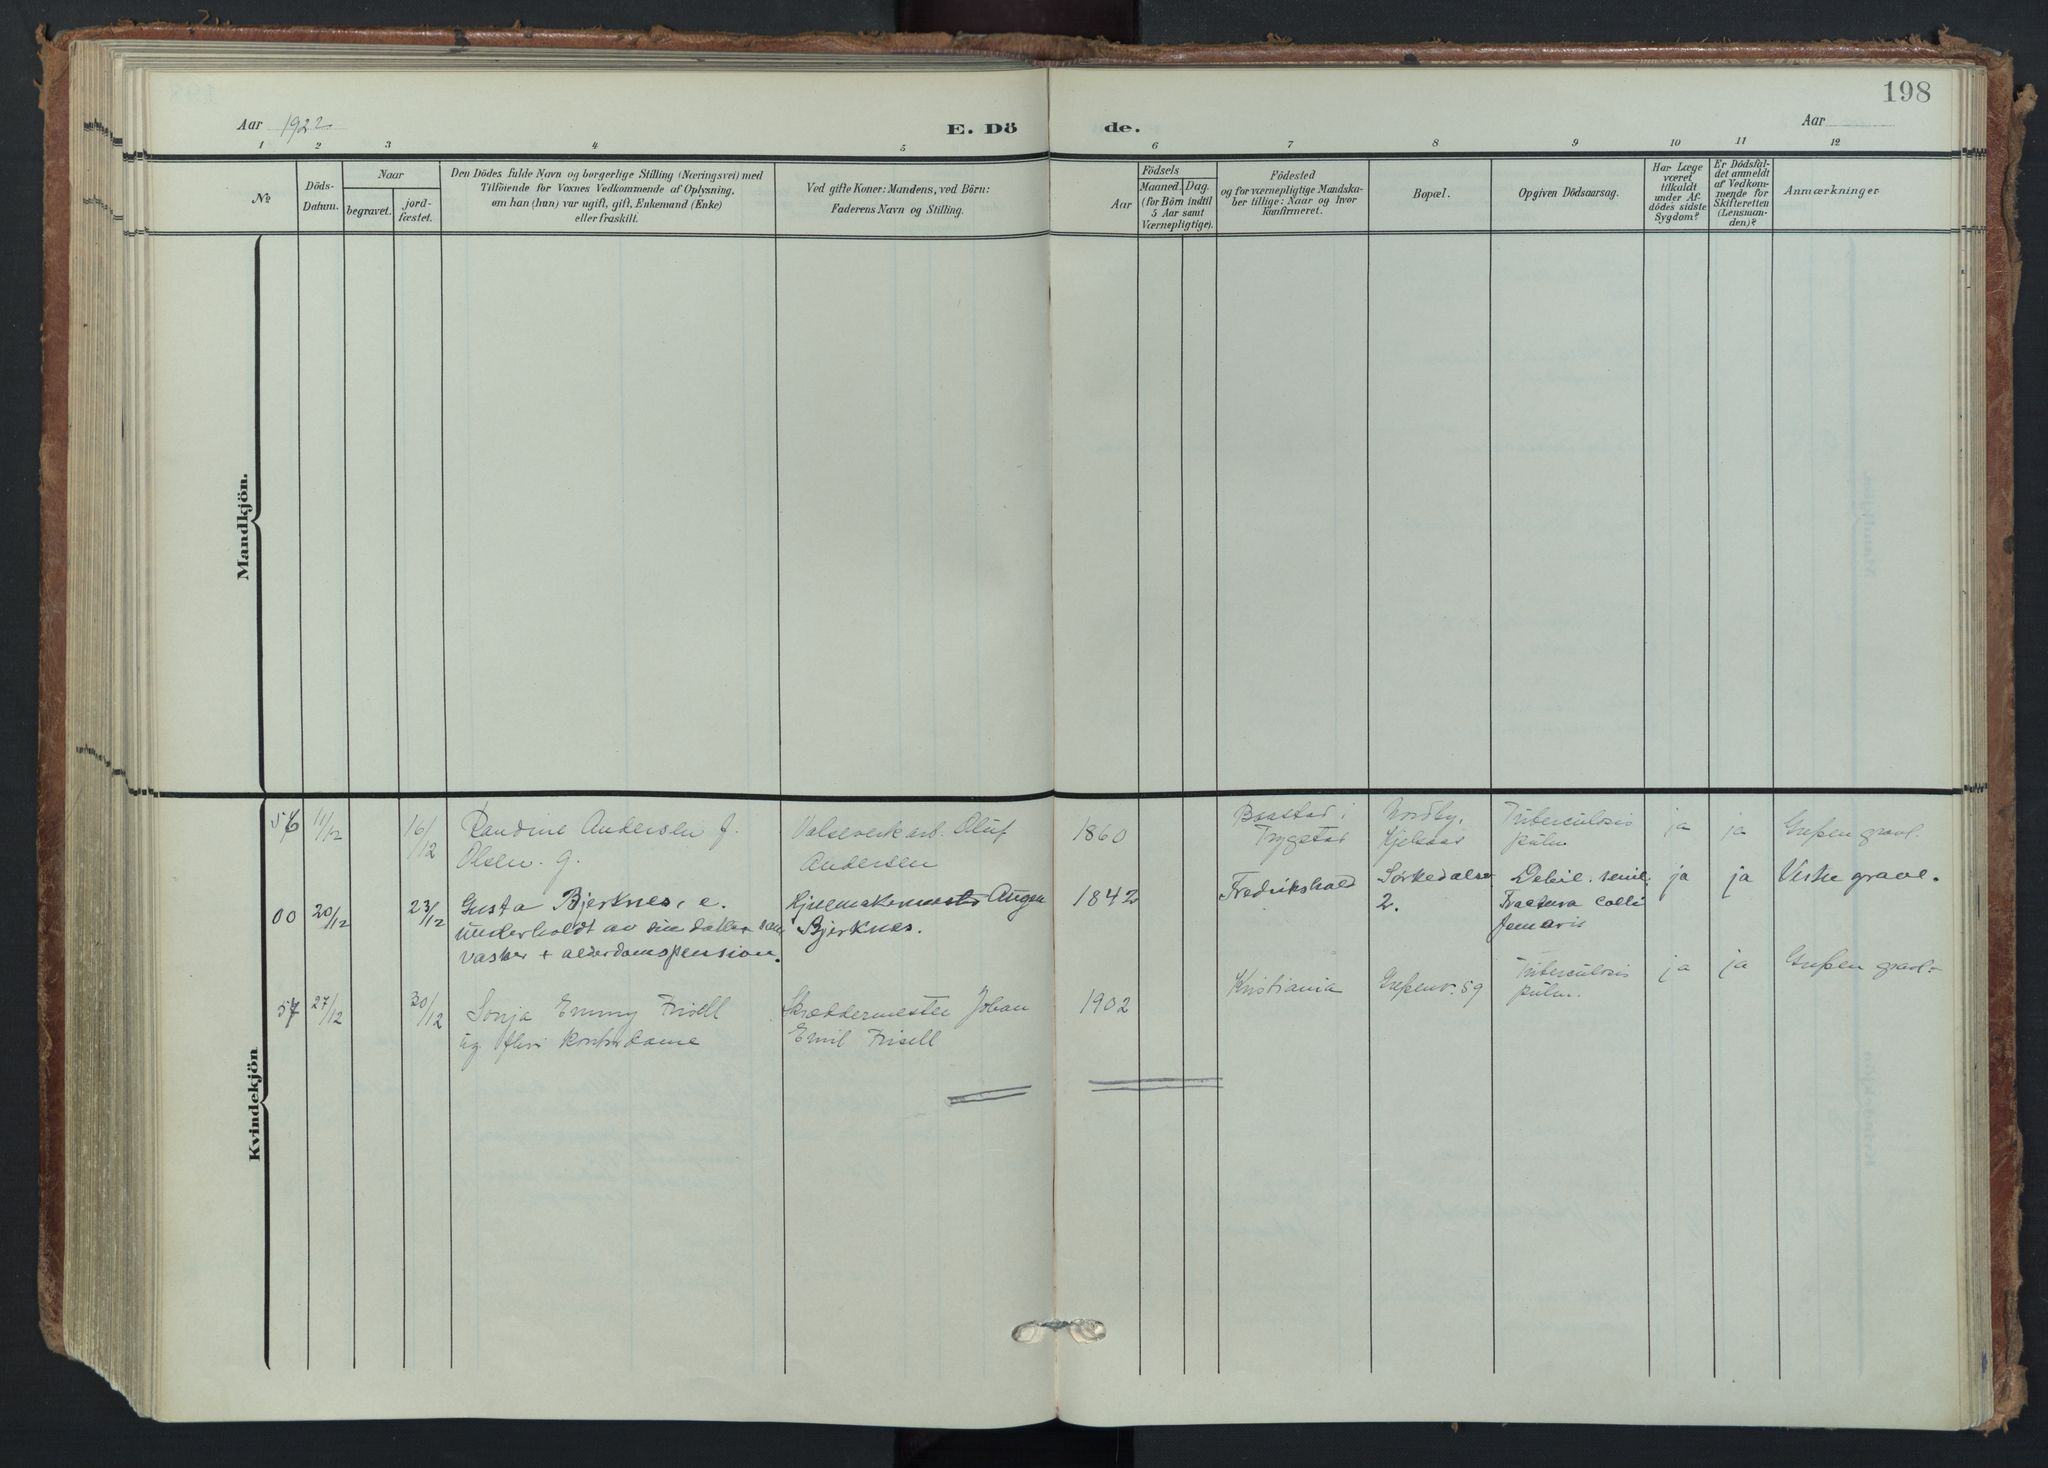 198
Aar 1922
E. Dö
de.
Aar
1 2 3 4 5 6 7 8 9 10 11 12
No
Döds-
Datum.
Naar
begravet.
jord-
fæstet.
Den Dödes fulde Navn og borgerlige Stilling (Næringsvei) med
Tilföiende for Voxnes Vedkommende af Oplysning,
om han (hun) var ugift, gift, Enkemand (Enke)
eller fraskilt.
Ved gifte Koner: Mandens, ved Börn:
Faderens Navn og Stilling.
Födsels
Aar
Maaned. Dag.
(for Börn indtil
5 Aar samt
Værnepligtige).
Födested
og for værnepligtige Mandska-
ber tillige: Naar og hvor
konfirmeret.
Bopæl.
Opgiven Dödsaarsag.
Har Læge
været
tilkaldt
under Af-
dödes sidste
Sygdom?
Er Dödsfal-
det anmeldt
af Vedkom-
mende for
Skifteretten
(Lensman-
den)?
Anmærkninger
Mandkjön.
Kvindekjön
56 11/12 16/12 Randine Andersen f. Valseverkarb. Oluf 1860 Baastad i Nordby, Tuberculosis ja ja Grefsen gravl.
Olsen. g. Andersen Trygstad Kjelsaas pulm
00 20/12 23/12 Gusta Bjerknes, e. Hjulmakermester 1842 Fredrikshald Sørkedalsv Debil. senil. ja ja Vestre gravl.
underholdt av sin datter som Bjerknes. 2. Fractura colli
vasker + alderdomspension. femoris
57 27/12 30/12 Sonja Emmy Frisell Skræddermester Johan 1902 Kristiania Grefsenv. 59 Tuberculosis ja ja Grefsen gravl.
ug. Emil Frisell pulm.